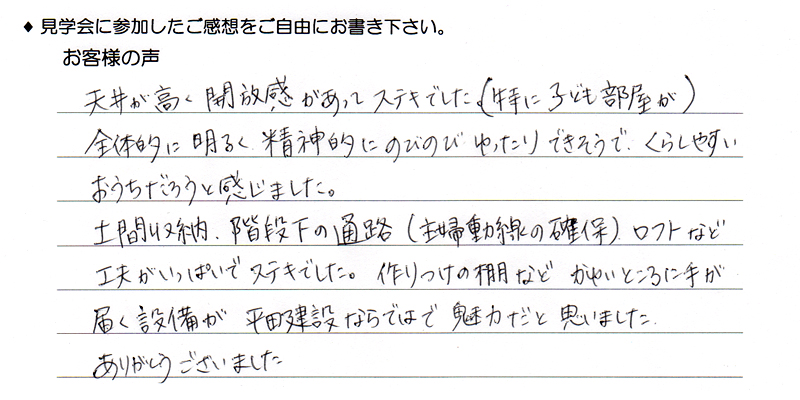 ◆ 見学会に参加したご感想をご自由にお書き下さい。
お客様の声
天井が高く開放感があってステキでした。(特に子ども部屋が)
全体的に明るく、精神的にのびのびゆったりできそうで、くらしやすい
おうちだろうと感じました。
土間収納、階段下の通路(主婦動線の確保)、ロフトなど
工夫がいっぱいでステキでした。作りつけの棚など かゆいところに手が
届く設備が 平田建設ならではで 魅力だと思いました。
ありがとうございました